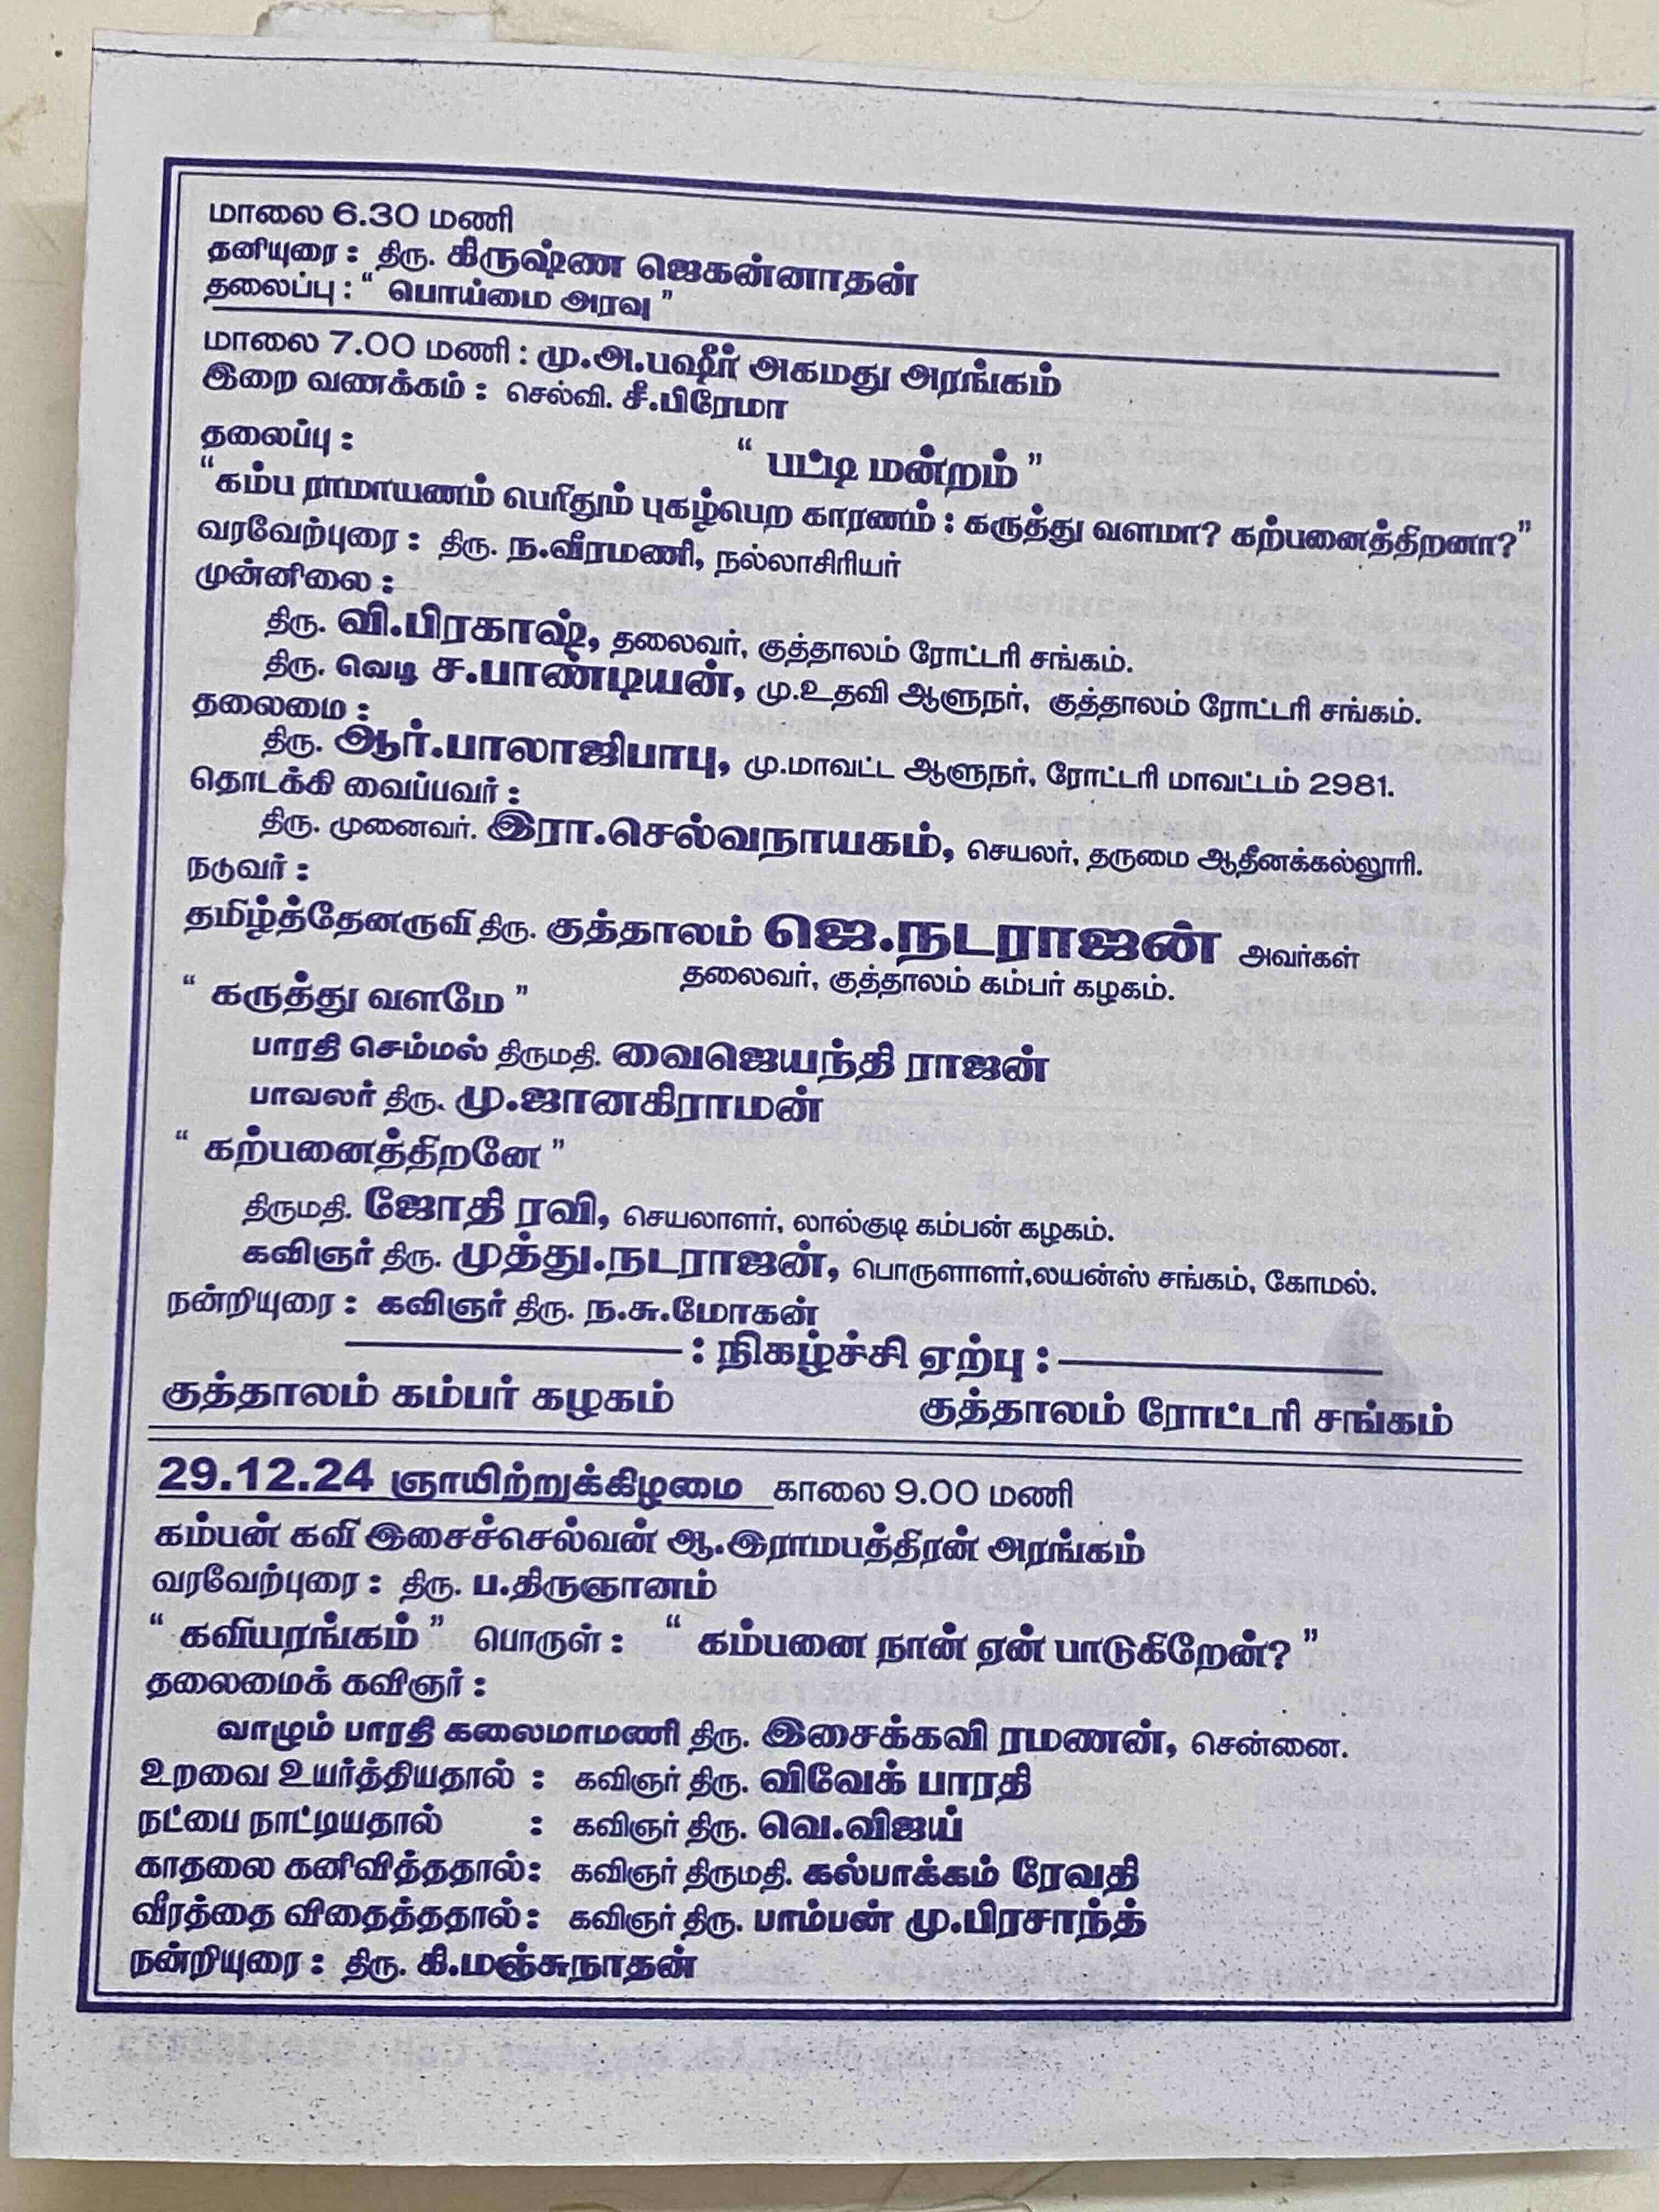 மாலை 6.30 மணி
தனியுரை : திரு. கிருஷ்ண ஜெகன்னாதன்
தலைப்பு : “ பொய்மை அரவு ”
மாலை 7.00 மணி : மு.அ.பஷீர் அகமது அரங்கம்
இறை வணக்கம் : செல்வி. சீ.பிரேமா
தலைப்பு : “ பட்டி மன்றம் ”
“கம்ப ராமாயணம் பெரிதும் புகழ்பெற காரணம் : கருத்து வளமா? கற்பனைத்திறனா?”
வரவேற்புரை : திரு. ந.வீரமணி, நல்லாசிரியர்
முன்னிலை :
திரு. வி.பிரகாஷ், தலைவர், குத்தாலம் ரோட்டரி சங்கம்.
திரு. வெடி ச.பாண்டியன், மு.உதவி ஆளுநர், குத்தாலம் ரோட்டரி சங்கம்.
தலைமை :
திரு. ஆர்.பாலாஜிபாபு, மு.மாவட்ட ஆளுநர், ரோட்டரி மாவட்டம் 2981.
தொடக்கி வைப்பவர் :
திரு. முனைவர். இரா.செல்வநாயகம், செயலர், தருமை ஆதீனக்கல்லூரி.
நடுவர் :
தமிழ்த்தேனருவி திரு. குத்தாலம் ஜெ.நடராஜன் அவர்கள்
தலைவர், குத்தாலம் கம்பர் கழகம்.
“ கருத்து வளமே ”
பாரதி செம்மல் திருமதி. வைஜெயந்தி ராஜன்
பாவலர் திரு. மு.ஜானகிராமன்
“ கற்பனைத்திறனே ”
திருமதி. ஜோதி ரவி, செயலாளர், லால்குடி கம்பன் கழகம்.
கவிஞர் திரு. முத்து.நடராஜன், பொருளாளர்,லயன்ஸ் சங்கம், கோமல்.
நன்றியுரை : கவிஞர் திரு. ந.சு.மோகன்
: நிகழ்ச்சி ஏற்பு :
குத்தாலம் கம்பர் கழகம் குத்தாலம் ரோட்டரி சங்கம்
29.12.24 ஞாயிற்றுக்கிழமை காலை 9.00 மணி
கம்பன் கவி இசைச்செல்வன் ஆ.இராமபத்திரன் அரங்கம்
வரவேற்புரை : திரு. ப.திருஞானம்
“ கவியரங்கம் ” பொருள் : “ கம்பனை நான் ஏன் பாடுகிறேன்? ”
தலைமைக் கவிஞர் :
வாழும் பாரதி கலைமாமணி திரு. இசைக்கவி ரமணன், சென்னை.
உறவை உயர்த்தியதால் : கவிஞர் திரு. விவேக் பாரதி
நட்பை நாட்டியதால் : கவிஞர் திரு. வெ.விஜய்
காதலை கனிவித்ததால் : கவிஞர் திருமதி. கல்பாக்கம் ரேவதி
வீரத்தை விதைத்ததால் : கவிஞர் திரு. பாம்பன் மு.பிரசாந்த்
நன்றியுரை : திரு. கி.மஞ்சுநாதன்